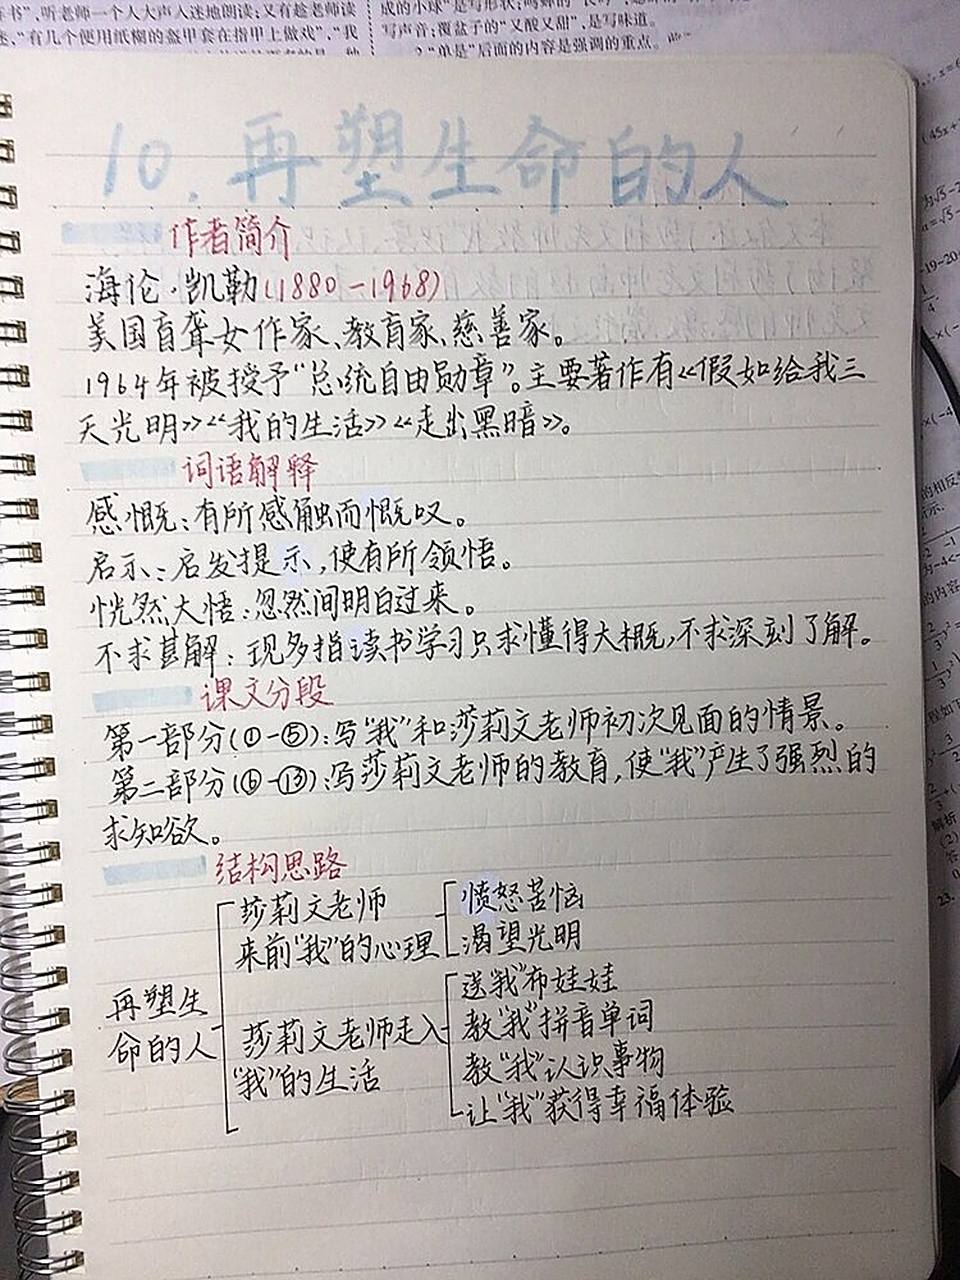 年书”,听老师一个人大声人迷地朗读;又有趁老师读
迷,“有几个便用纸糊的盔甲套在指甲上做戏”,“我
写声音;覆盆子的“又酸又甜”,是写味道。
2.“单是”后面的内容是强调的重点。
10.再塑生命的人
作者简介
海伦·凯勒(1880-1968)
美国盲聋女作家、教育家、慈善家。
1964年被授予“总统自由勋章”。主要著作有《假如给我三
天光明》《我的生活》《走出黑暗》。
词语解释
感慨:有所感触而慨叹。
启示:启发提示,使有所领悟。
恍然大悟:忽然间明白过来。
不求甚解:现多指读书学习只求懂得大概,不求深刻了解。
课文分段
第一部分(①-⑤):写“我”和莎莉文老师初次见面的情景。
第二部分(⑥-⑬):写莎莉文老师的教育,使“我”产生了强烈的
求知欲。
结构思路
再塑生
命的人
莎莉文老师
来前“我”的心理
愤怒苦恼
渴望光明
莎莉文老师走入
“我”的生活
送“我”布娃娃
教“我”拼音单词
教“我”认识事物
让“我”获得幸福体验